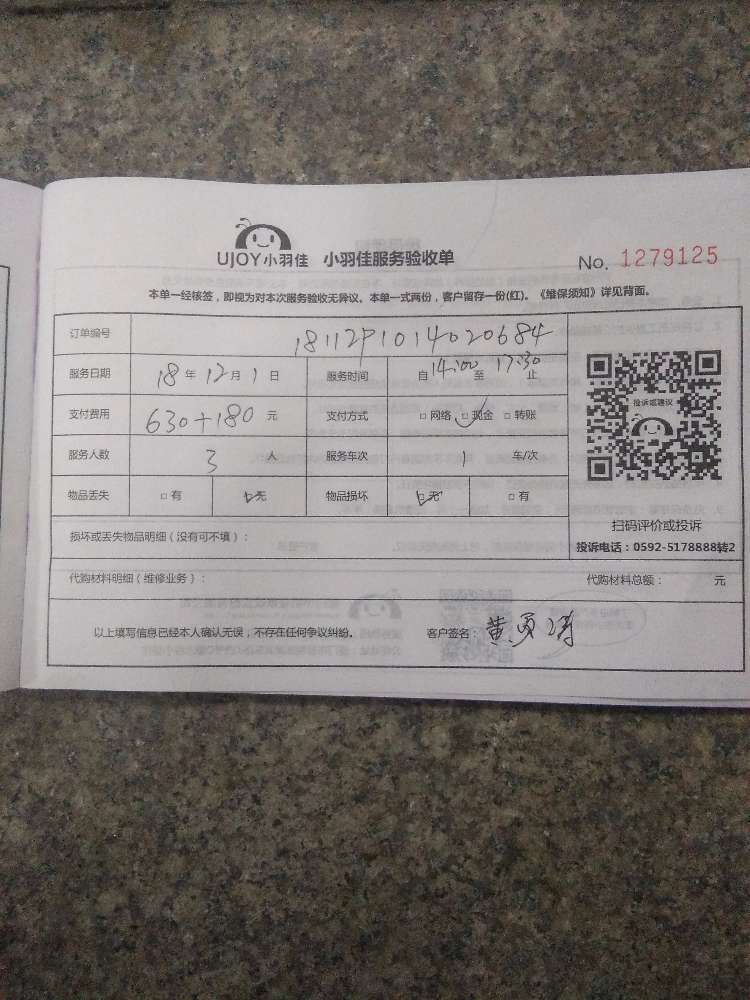 UJOY小羽佳 小羽佳服务验收单 No. 1279125
本单一经核签，即视为对本次服务验收无异议。本单一式两份，客户留存一份(红)。《维保须知》详见背面。
订单编号 181129101402068​4
服务日期 18 年 12 月 1 日 服务时间 自 14:00 至 17:30 止
支付费用 630+180 元 支付方式 □ 网络 □ 现金 □ 转账
投诉或建议
服务人数 3 人 服务车次 1 车/次
物品丢失 □ 有 □ 无 物品损坏 □ 无 □ 有
扫码评价或投诉
损坏或丢失物品明细（没有可不填）：
投诉电话：0592-5178888转2
代购材料明细（维修业务）： 代购材料总额： 元
以上填写信息已经本人确认无误，不存在任何争议纠纷。 客户签名：黄勇涛